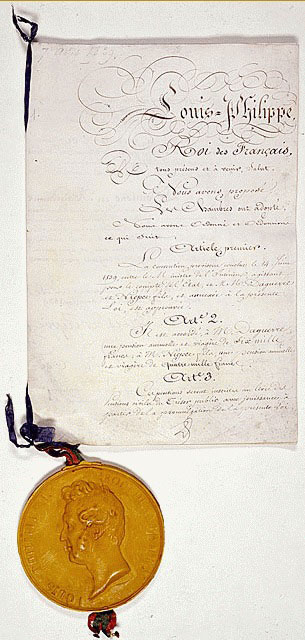 Louis=Philippe,
Roi des Français,
A tous présens et à venir, Salut.
Nous avons proposé
Les Chambres ont adopté
Nous avons Ordonné et Ordonnons
ce qui suit.
Article premier.
La convention provisoire conclue le 14 Juin
1839, entre le Ministre de l'Intérieur, agissant
pour le compte de l'État, et M. Daguerre
et Niépce fils, et annexée à la présente
Loi, est approuvée.
Art. 2.
Il est accordé, à M. Daguerre
une pension annuelle et viagère de Six mille
francs; à M. Niépce fils, une pension annuelle
et viagère de quatre mille francs.
Art. 3.
Ces pensions seront inscrites au livre des
pensions civiles du Trésor public avec jouissance à
partir de la promulgation de la présente loi.